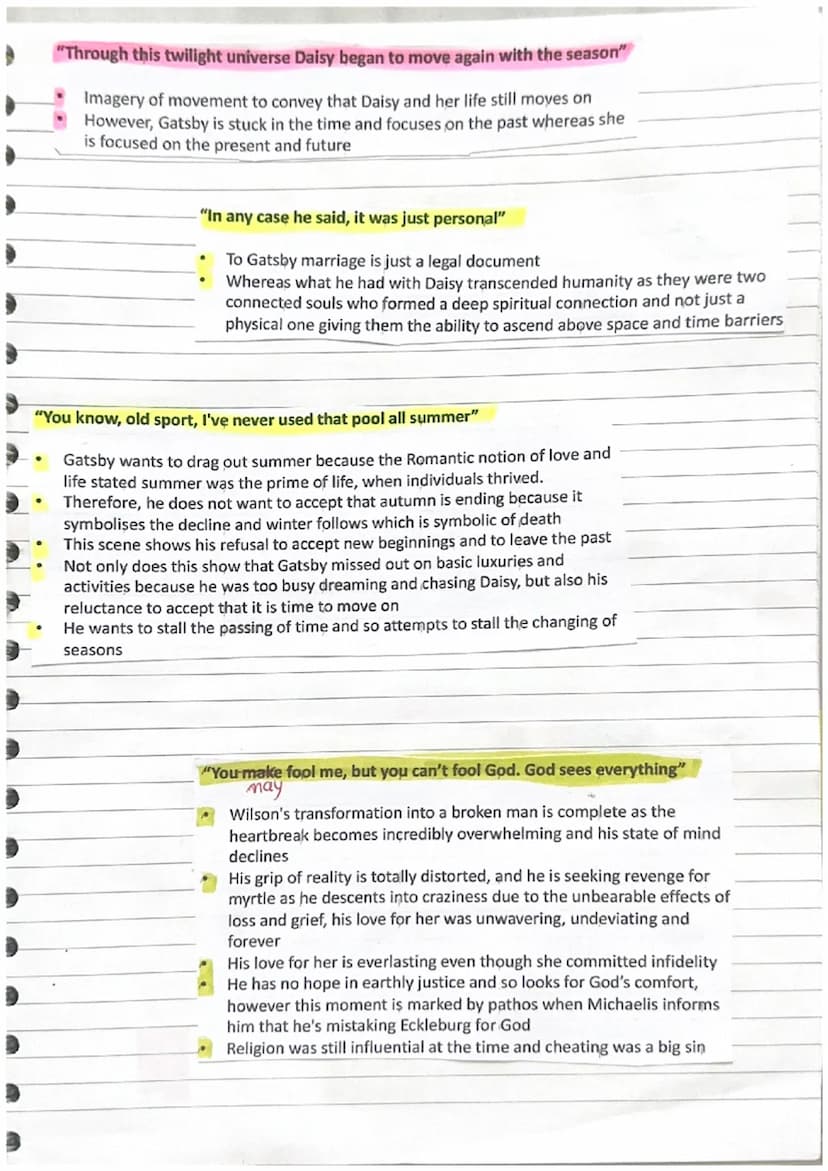 “Through this twilight universe Daisy began to move again with the season”
• Imagery of movement to convey that Daisy and her life still moves on
• However, Gatsby is stuck in the time and focuses on the past whereas she
is focused on the present and future
“In any case he said, it was just personal”
• To Gatsby marriage is just a legal document
• Whereas what he had with Daisy transcended humanity as they were two
connected souls who formed a deep spiritual connection and not just a
physical one giving them the ability to ascend above space and time barriers
“You know, old sport, I've never used that pool all summer”
• Gatsby wants to drag out summer because the Romantic notion of love and
life stated summer was the prime of life, when individuals thrived.
• Therefore, he does not want to accept that autumn is ending because it
symbolises the decline and winter follows which is symbolic of death
• This scene shows his refusal to accept new beginnings and to leave the past
• Not only does this show that Gatsby missed out on basic luxuries and
activities because he was too busy dreaming and chasing Daisy, but also his
reluctance to accept that it is time to move on
• He wants to stall the passing of time and so attempts to stall the changing of
seasons
“You make fool me, but you can’t fool God. God sees everything”
may
• Wilson's transformation into a broken man is complete as the
heartbreak becomes incredibly overwhelming and his state of mind
declines
• His grip of reality is totally distorted, and he is seeking revenge for
myrtle as he descents into craziness due to the unbearable effects of
loss and grief, his love for her was unwavering, undeviating and
forever
• His love for her is everlasting even though she committed infidelity
• He has no hope in earthly justice and so looks for God's comfort,
however this moment is marked by pathos when Michaelis informs
him that he's mistaking Eckleburg for God
• Religion was still influential at the time and cheating was a big sin